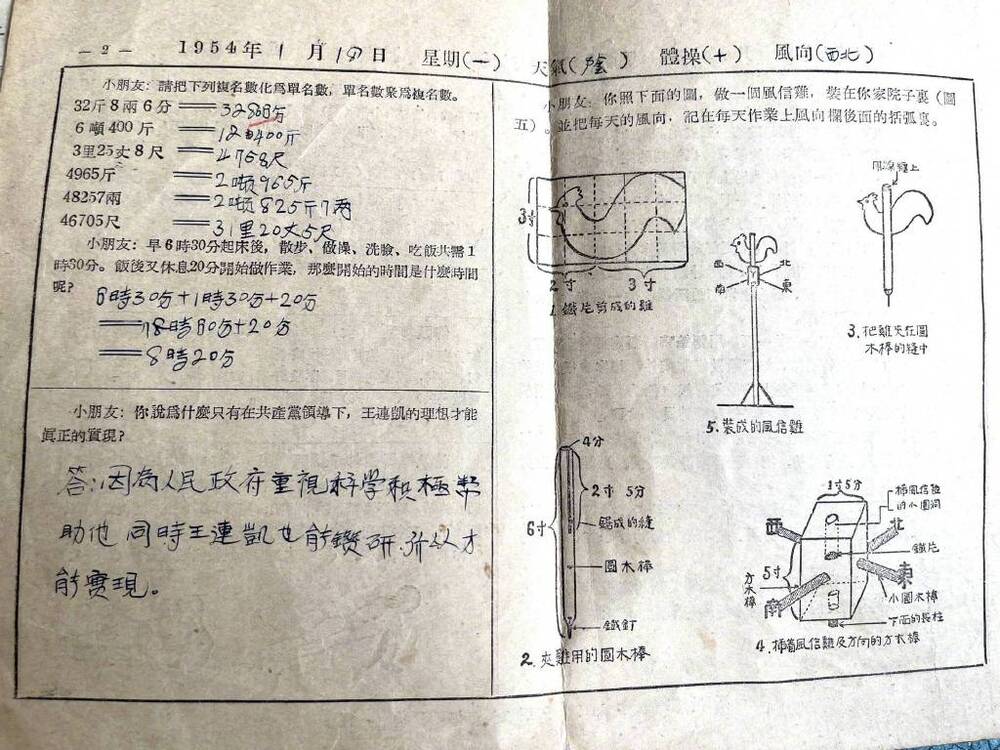 — 2 —　1954年 1 月 19 日　星期(一)　天氣(陰)　體操(十)　風向(西北)
小朋友：請把下列複名數化爲單名數，單名數聚爲複名數。
32斤8兩6分 ══
6噸400斤 ══ 12400斤
3里25丈8尺 ══ 4758尺
4965斤 ══ 2噸965斤
48257兩 ══ 2噸825斤7兩
46705尺 ══ 31里20丈5尺
小朋友：早6時30分起床後，散步、做操、洗臉、吃飯共需1
時30分。飯後又休息20分開始做作業，那麼開始的時間是什麼時間
呢？
6時30分+1時30分+20分
══ 8時0分+20分
══ 8時20分
小朋友：你說爲什麼只有在共產黨領導下，王連凱的理想才能
眞正的實現？
答：因為人民政府重視科学積極幫
助他 同時王連凱也能鑽研.所以才
能實現。
小朋友：你照下面的圖，做一個風信雞，裝在你家院子裏（圖
五）。並把每天的風向，記在每天作業上風向欄後面的括弧裏。
3寸
2寸
3寸
1.鐵片剪成的雞
西
北
南
東
5.裝成的風信雞
3.把雞夾在圓
木棒的縫中
4分
2寸 5分
6寸
鋸成的縫
圓木棒
鐵釘
2.夾雞用的圓木棒
1寸5分
插風信雞
的小圓洞
西
北
鐵片
5寸
方木棒
東
南
小圓木棒
下面的長柱
4.插着風信雞及方向的方木棒